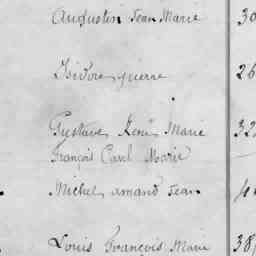 Augustin Jean Marie 30
Isidore pierre 26
Gustave René Marie 32
François Carel Marie
Michel amand Jean
Louis François Marie 38